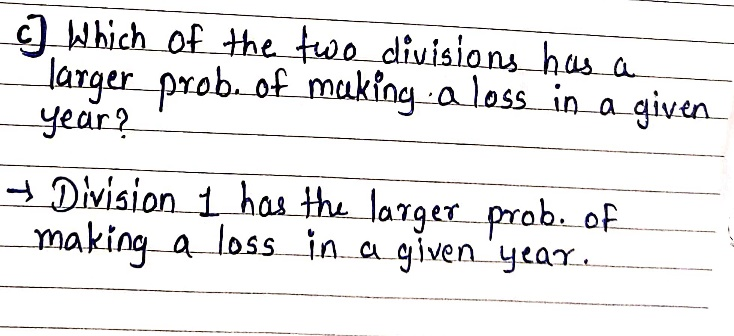 c] Which of the two divisions has a
larger prob. of making a loss in a given
year?
→ Division 1 has the larger prob. of
making a loss in a given year.